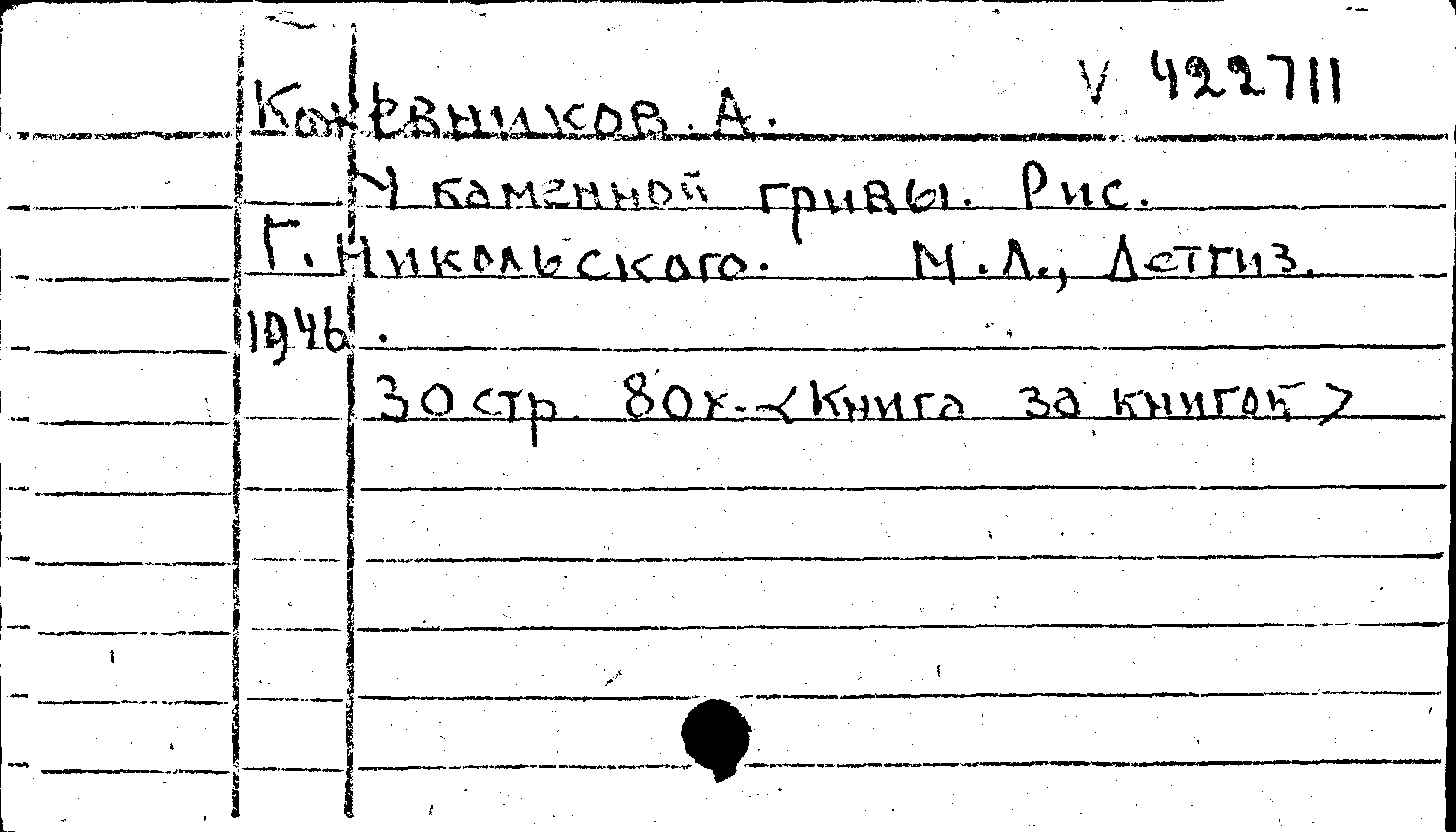 V 422711
Кожевников. А.
У каменной гривы. Рис.
Г. Никольского. М.Л., Детгиз.
1946.
30 стр. 80к. <Книга за книгой>